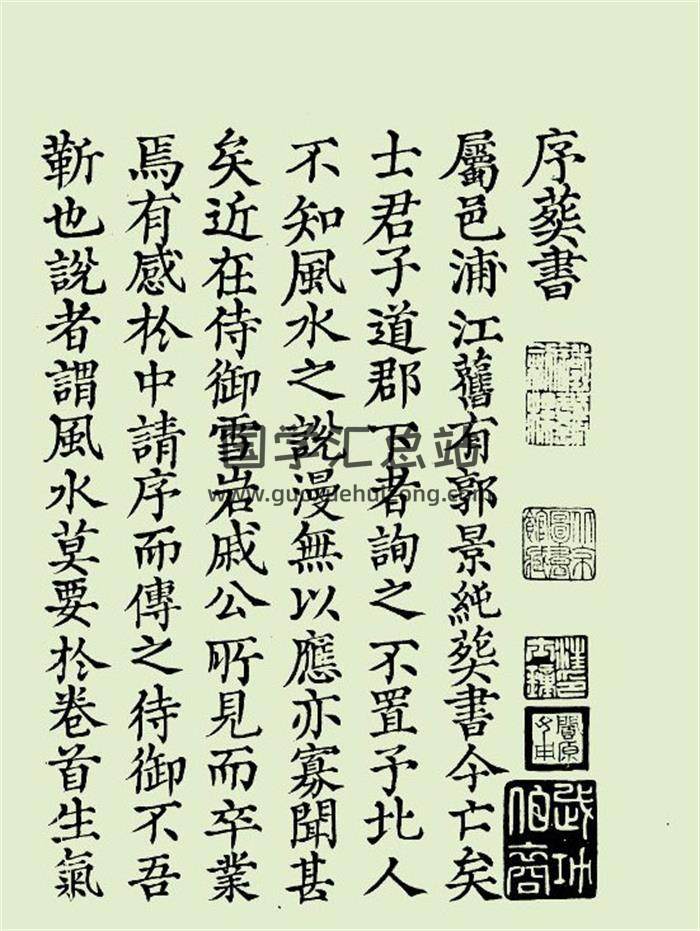 序葬書
屬邑浦江舊有郭景純葬書今亡矣
士君子道郡下者詢之不置予北人
不知風水之說漫無以應亦寡聞甚
矣近在侍御雪岩戚公所見而卒業
焉有感於中請序而傳之待御不吾
靳也說者謂風水莫要於卷首生氣
国学汇总站
www.guoxuehuizong.com